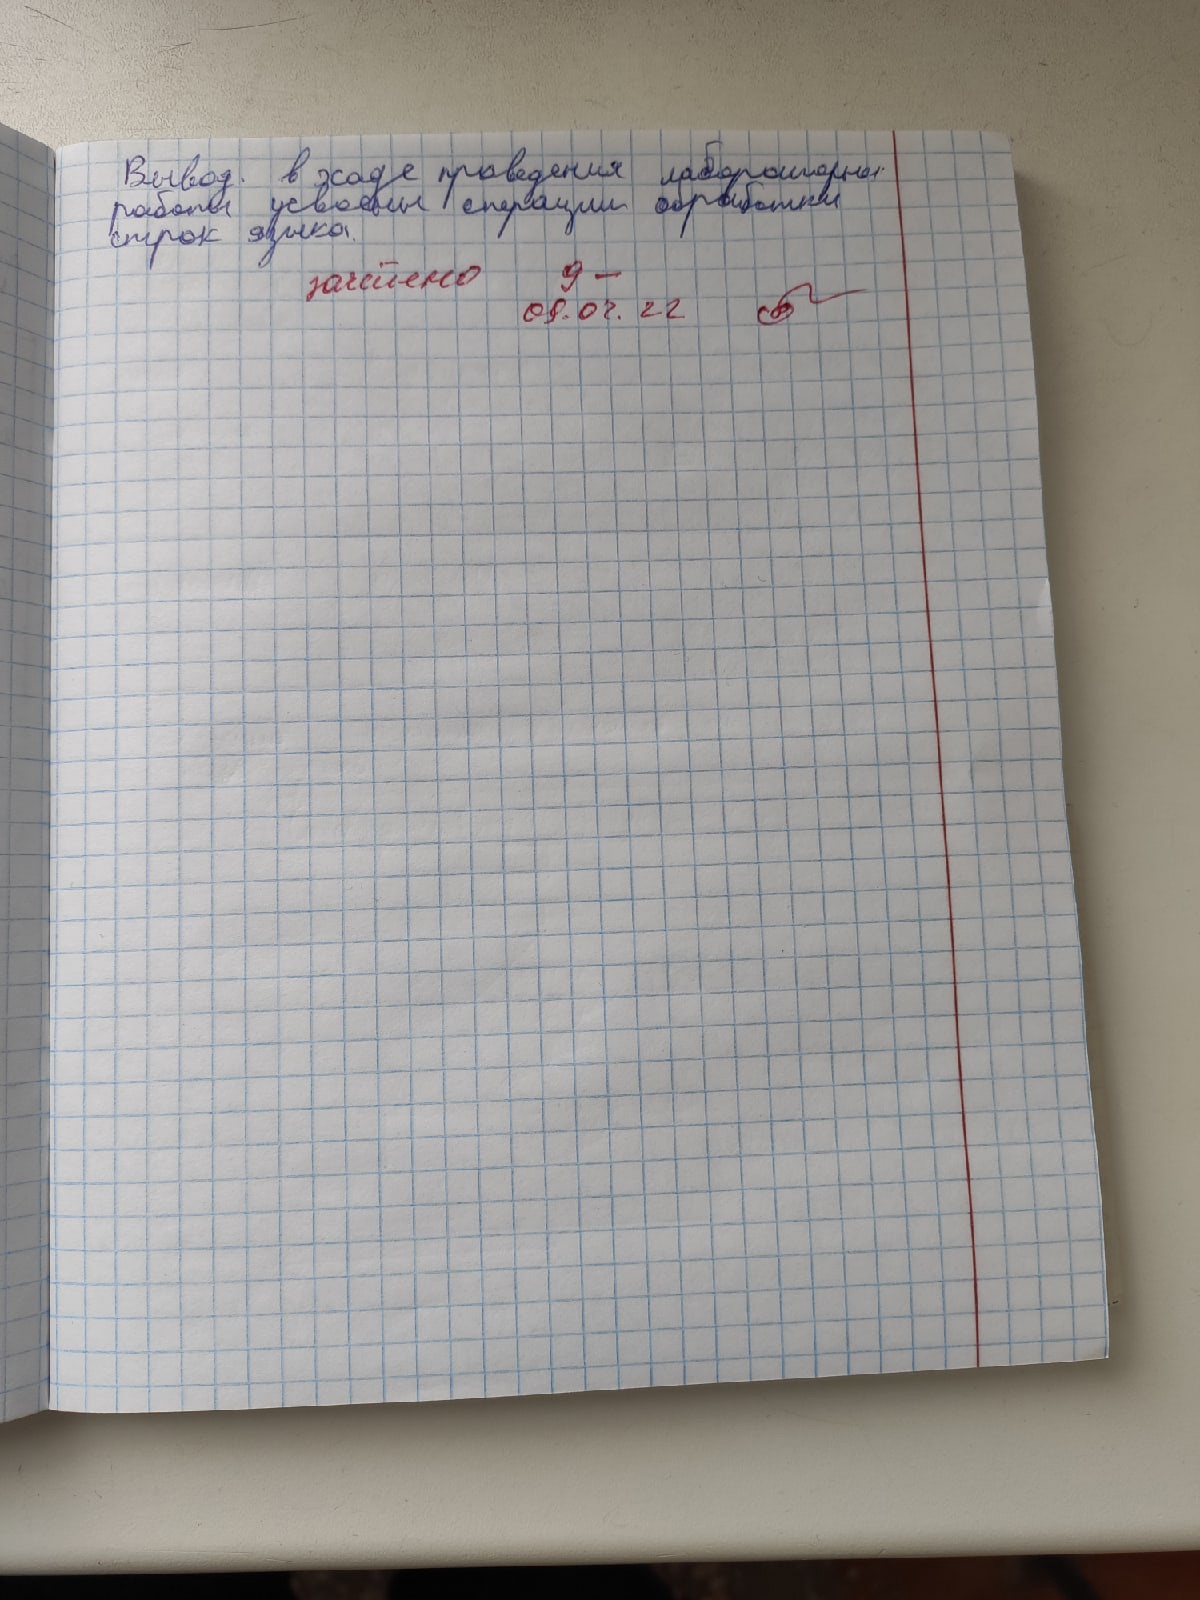 Вывод. в ходе проведения лабораторной
работы усвоены операции обработки
строк языка.
зачтено 9 –
09.02.22